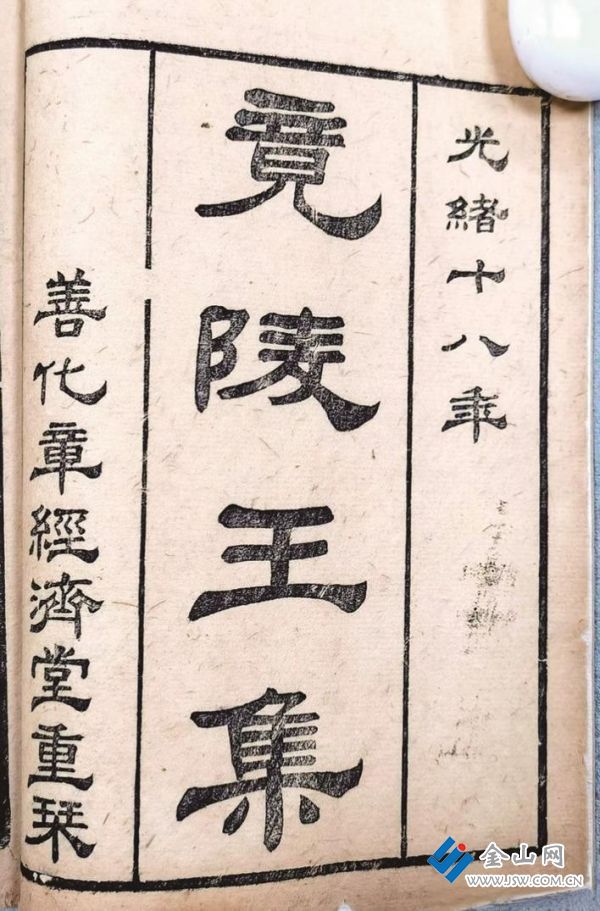 光緒十八年
竟陵王集
善化章經濟堂重栞
金山网
WWW.JSW.COM.CN